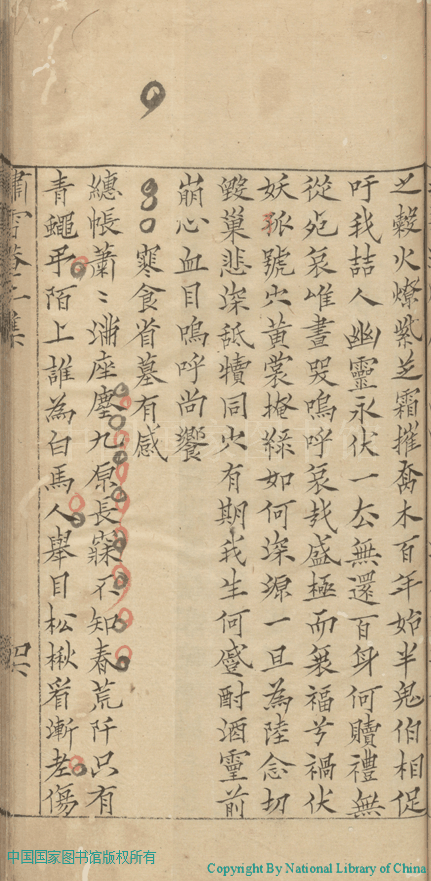 之穀火燎紫芝霜摧喬木百年始半鬼伯相促
吁我喆人幽靈永伏一去無還百身何贖禮無
從死哀唯晝哭嗚呼哀哉盛極而衰福兮禍伏
妖狐號出黄裳掩綠如何深源一旦為陸念切
毀巢悲深舐犢同穴有期我生何蹙酹酒靈前
崩心血目嗚呼尚饗
寒食省墓有感
繐帳蕭〻滿座塵九原長寐不知春荒阡只有
青蠅弔陌上誰為白馬人舉目松楸看漸老傷
集
中国国家图书馆版权所有
Copyright By National Library of China